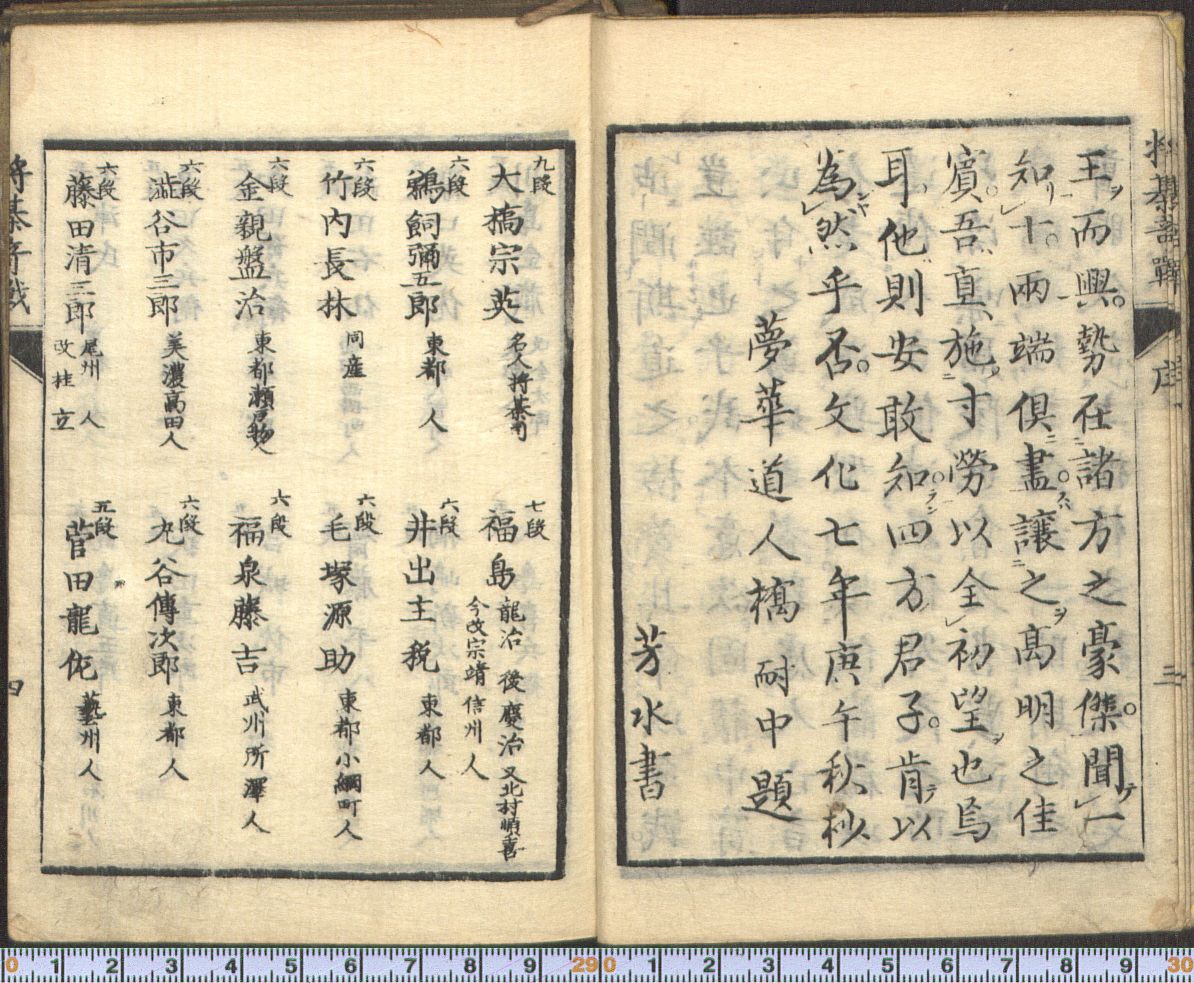 王而興勢在諸方之豪傑聞一
知十兩端倶盡讓之高明之佳
賓吾亘施寸勞以全初望也烏
耳他則安敢知四方君子肯以
為然乎否文化七年庚午秋杪
夢華道人橘耐中題
芳水書
序
二
九段
大橋宗英 名人將棊司
七段
福島龍治 後慶治 又北村順喜
今改宗靖 信州人
六段
鵜飼彌五郎 東都人
六段
井出主税 東都人
六段
竹内長林 同産
六段
毛塚源助 東都小網町人
六段
金親盤治 東都瀬戸物人
六段
福泉藤吉 武州所澤人
六段
澁谷市三郎 美濃高田人
六段
九谷傳次郎 東都人
六段
藤田清三郎 尾州人
改桂立
五段
菅田龍佗 藝州人
四
0 1 2 3 4 5 6 7 8 9 290 1 2 3 4 5 6 7 8 9 30